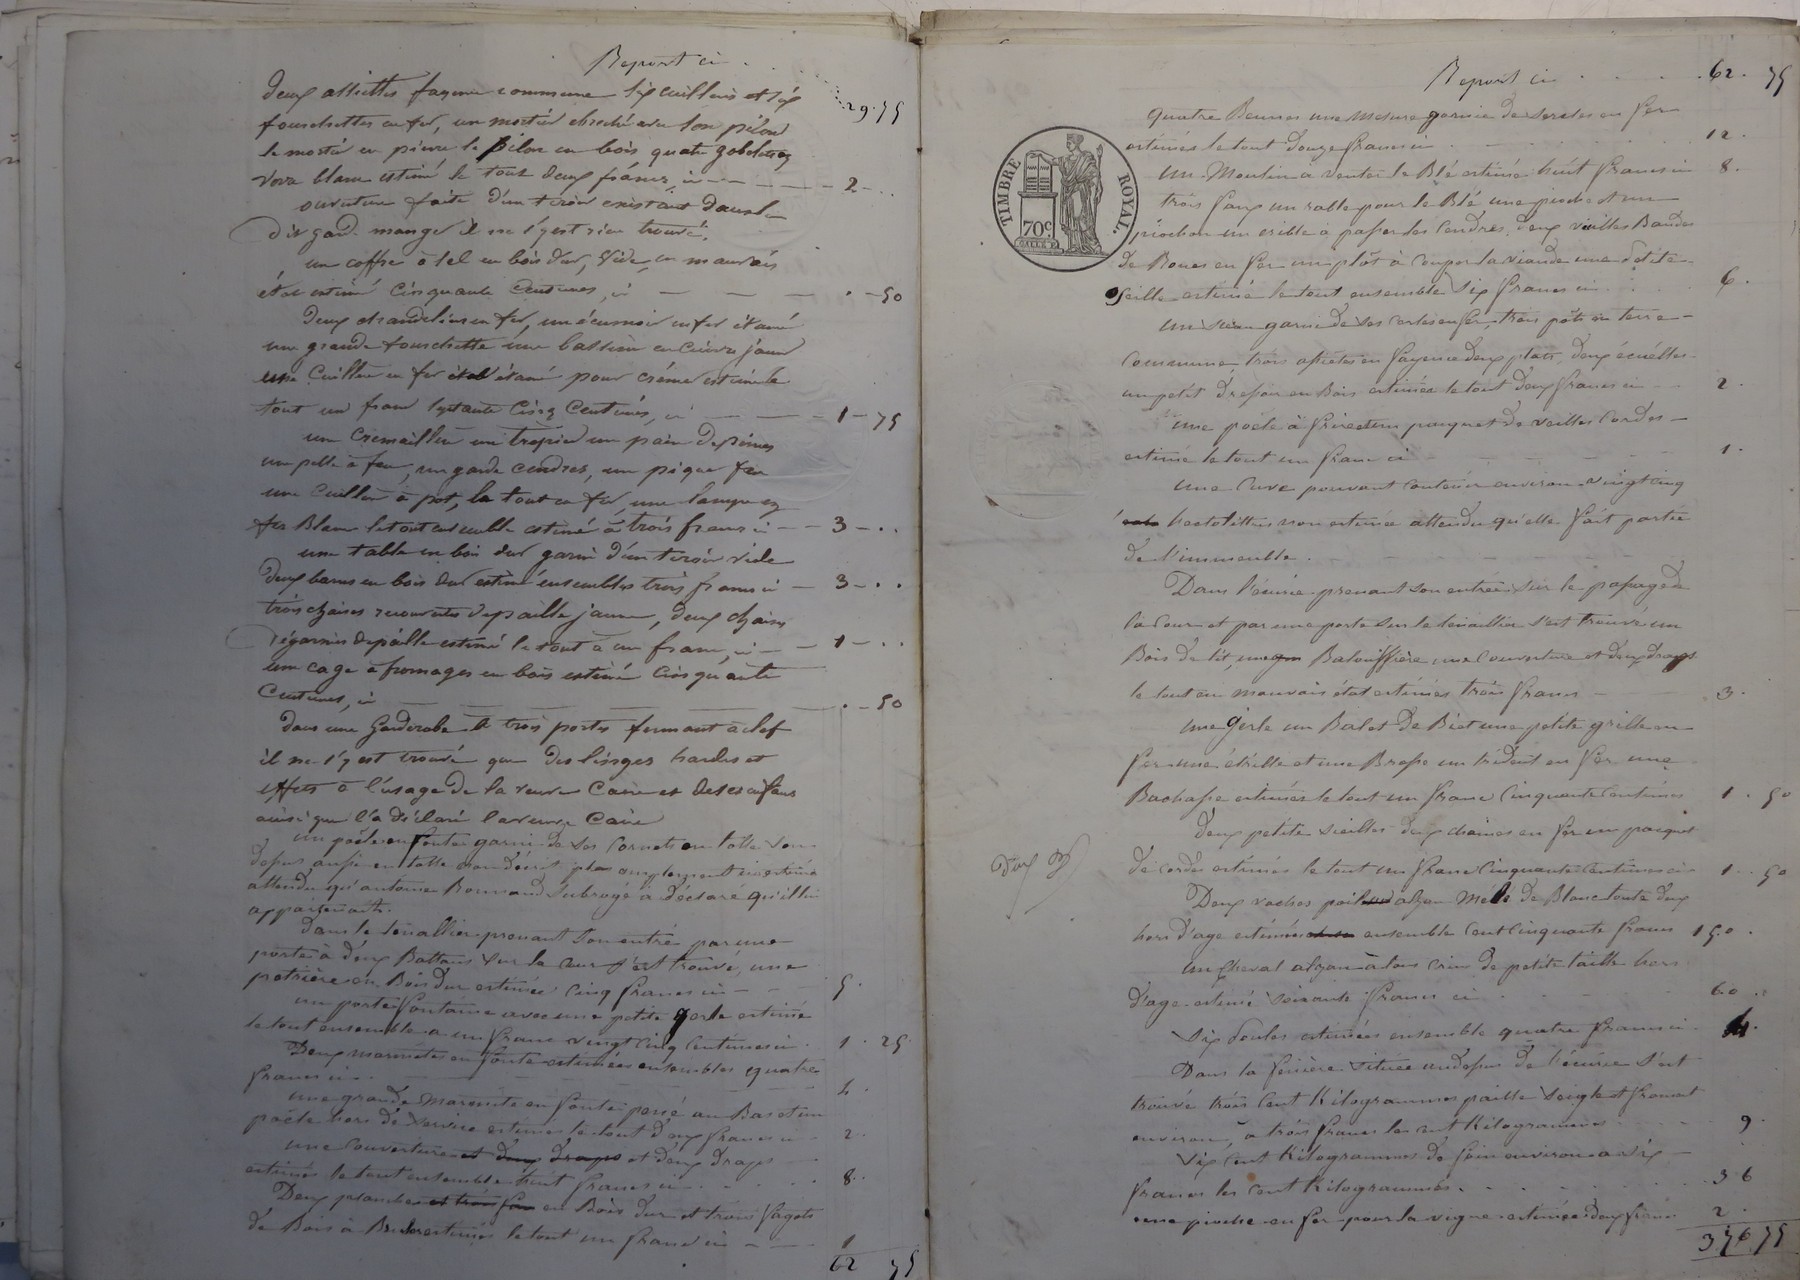 Report ci . . . 29. 75
deux assiettes fayence commune six cuilliers et six
fourchettes en fer, un mortier ebreché avec son pilon
le mortié en pierre le pilon en bois quatre gobelets en
verre blanc estimé le tout deux francs, ci — — — 2 - . .
ouverture faite d'un tiroir existant dans le
dit gard manger il ne s'y est rien trouvé.
un coffre à sel en bois dur, vide, en mauvais
état estimé cinquante centimes, ci — — — . - 50
Deux chandeliers en fer, un écumoir en fer étamé
une grande fourchette une bassine en cuivre jaune
une cuillier en fer étamé pour crème estimé le
tout un franc septante cinq centimes, ci — — — 1 - 75
une cremaillère un trépied une paire de pinces
une pelle à feu, un garde cendres, un pique feu
une cuillier à pot, le tout en fer, une lampe en
fer blanc le tout ensemble estimé à trois francs ci — — 3 - . .
une table en bois dur garni d'un tiroir vide
deux bancs en bois dur estimé ensembles trois francs ci — 3 - . .
trois chaises recouvertes de paille jaune, deux chaises
dégarnies de paille estimé le tout à un franc, ci — — 1 - . .
une cage à fromages en bois estimé cinquante
centimes, ci — — — . - 50
dans une garderobe à trois portes fermant à clef
il ne s'y est trouvé que des linges hardes et
effets à l'usage de la veuve Caire et de ses enfans
ainsi que l'a déclaré la veuve Caire
un poêle en fonte garni de ses cornets en tolle
attendu qu'antoine subrogé a déclaré qu'il lui
appartenait.
Dans le prenant son entré par une
porte à deux Battans sur la cour s'est trouvé, une
petrière en Bois dur estimée cinq francs ci — — 5 .
un porte fontaine avec une petite gerle estimé
le tout ensemble a un franc vingt cinq centimes ci . 1 . 25
Deux marmites en fonte estimées ensembles quatre
francs ci . — — — 4 .
une grande marmite en fonte percé au Bas et un
poêle hors de service estimés le tout deux francs ci . 2 .
une couverture et deux draps
estimés le tout ensemble huit francs ci . . . 8 .
Deux planches en Bois dur et trois fagots
de Bois à Bruler estimés le tout un franc ci — — 1
62 75
Report ci . . . 62 . 75
quatre Bennes une mesure garnie de sercles en fer
estimés le tout douze francs ci . . . 12 .
un Moulin a venter le Blé estimé huit francs ci 8 .
trois faux un rable pour le Blé une pioche et un
piochon un crible a passer les cendres, deux vieilles Bandes
de Roues en fer un plôt à couper la viande une petite
seille estimé le tout ensemble six francs ci . . . 6 .
un seau garni de ses cercles en fer, trois pôts en terre
commune, trois assietes en fayence deux plats, deux écuélles
un petit dressoir en Bois estimés le tout deux francs ci — 2 .
une poele à frire un paquet de veilles cordes —
estimé le tout un franc ci — — — 1 .
une cuve pouvant contenir environ vingt cinq
hectolitres non estimée attendu qu'elle fait partie
de l'immeuble .
Dans l'écurie prenant son entrée sur le passage de
la cour et par une porte sur le s'est trouvé un
Bois de lit, une Balouffière une couverture et deux draps
le tout en mauvais état estimés trois francs — 3 .
une gerle un Balot de une petite grille en
fer une étrille et une Brosse un trident en fer une
Bachasse estimés le tout un franc cinquante centimes 1 . 50
deux petite sieilles deux chaines en fer un paquet
de cordes estimés le tout un franc cinquante centimes ci 1 . 50
Deux vaches poil alzan mêlé de Blanc toute deux
hors d'age estimées ensemble cent cinquante francs 150 .
un cheval alzan à tous crins de petite taille hors
d'age estimé soixante francs ci . . . 60 .
six poules estimées ensemble quatre francs ci . 4 .
Dans la fenière située audessus de l'écurie s'est
trouvé trois cent Kilogrammes paille seigle et froment
environ, à trois francs les cent Kilogrammes . . . 9 .
six cent Kilogrammes de foin environ a six —
francs les cent Kilogrammes . . . 36
une pioche en fer pour la vigne estimée deux francs 2 .
376 75
TIMBRE ROYAL.
70c.